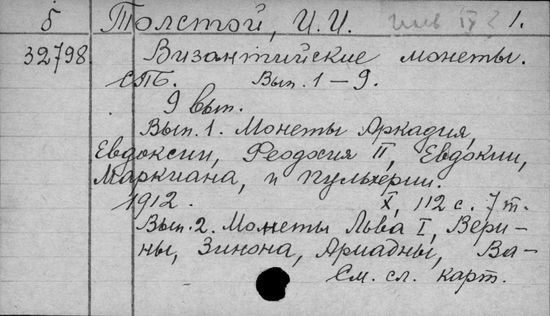 б Толстой, И.И. 1.
32798 Византийские монеты.
СПБ. Вып. 1–9.
9 вып.
Вып. 1. Монеты Аркадия,
Евдоксии, Феодосия II, Евдокии,
Маркиана, и Пульхерии.
1912. X, 112 с. 7 т.
Вып. 2. Монеты Льва I, Вери-
ны, Зинона, Ариадны, Ва-
См. сл. карт.